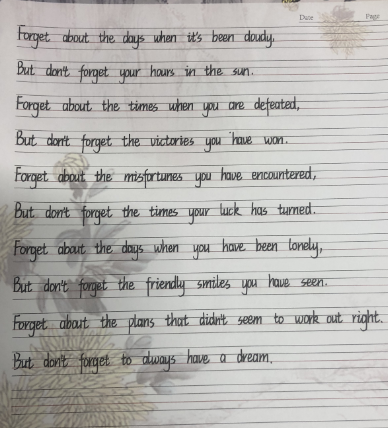 Date Page
Forget about the days when it's been cloudy,
But don't forget your hours in the sun.
Forget about the times when you are defeated,
But don't forget the victories you have won.
Forget about the misfortunes you have encountered,
But don't forget the times your luck has turned.
Forget about the days when you have been lonely,
But don't forget the friendly smiles you have seen.
Forget about the plans that didn't seem to work out right.
But don't forget to always have a dream.